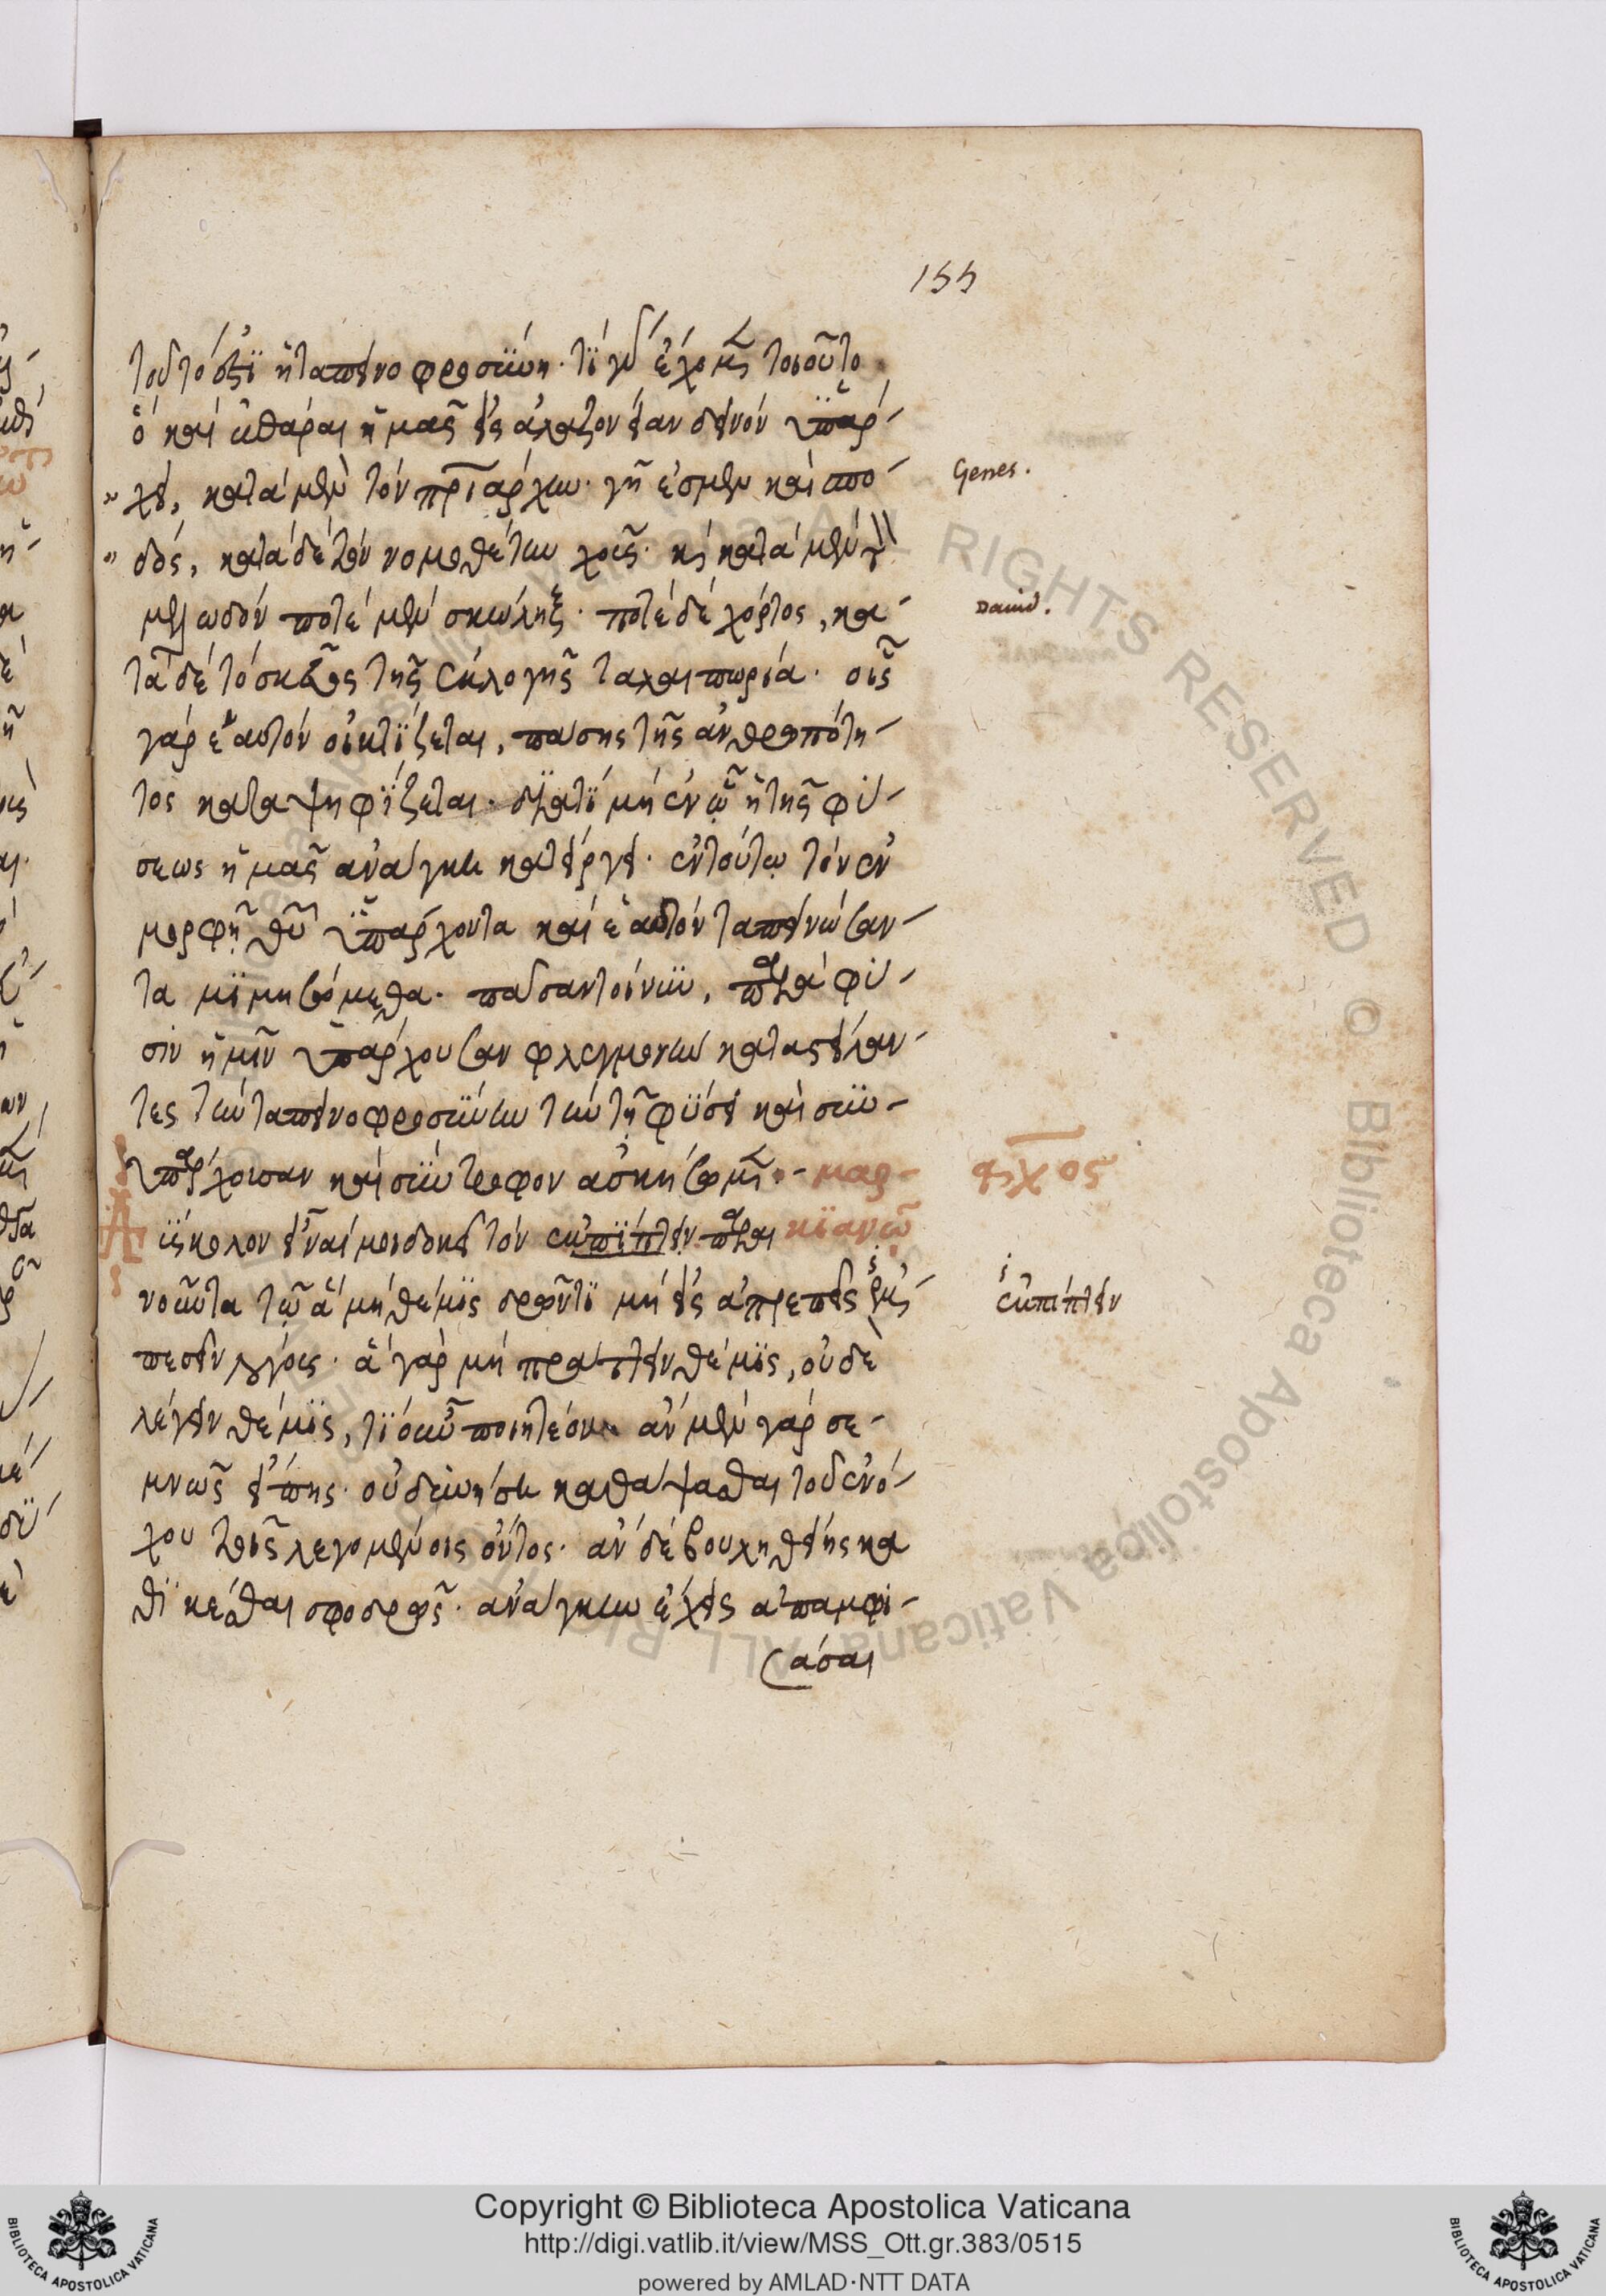 155
τοῦτό ἐστϊ ἡ ταπεινοφροσΰνη· τί γὰρ ἔχομεν τοιοῦτο
ὃ καὶ ἐπᾶραι ἡμᾶς εἰς ἀλαζονείαν δεινόν ὑπάρ-
" χει, κατὰ μὲν τὸν πριάρχην· γῆ ἐσμὲν καὶ σπο-
" δός, κατὰ δὲ τὸν νομοθέτην χοῦς· καὶ κατὰ μὲν
μελωδόν ποτὲ μὲν σκώληξ· ποτὲ δὲ χόρτος, κα-
τὰ δὲ τὸ σκεῦος τῆς ἐκλογῆς ταλαιπωρία· οἷς
γὰρ ἑαυτὸν οἰκτίζεται, πάσης τῆς ἀνθρωπότη-
τος καταψηφίζεται· διατί μὴ ἐν ᾧ ἡ τῆς φύ-
σεως ἡμᾶς ἀνάγκη κατείργει· ἐν τούτῳ τὸν ἐν
μορφῇ θυ ὑπάρχοντα καὶ ἑαυτόν ταπεινώσαν-
τα μιμησόμεθα· πᾶσαν τοίνυν, παρὰ φύ-
σιν ἡμῖν ὑπάρχουσαν φλεγμονὴν καταστείλαν-
τες τὴν ταπεινοφροσύνην τὴν τῇ φύσει καὶ συν-
υπάρχουσαν καὶ σύντροφον ἀσκήσομεν· - μαρ-
κϊανῷ
στίχος
Δύσκολον εἶναί μοι δοκεῖ τὸν ἐμπίπτειν παραι
νοῦντα τῷ ἃ μὴ θέμις δρῶντϊ μὴ εἰς ἀπρεπεῖς ἐμ-
ἐμπίπτειν
πεσεῖν λόγους· ἃ γὰρ μὴ πράττειν θέμις, οὐδὲ
λέγειν θέμις, τί οὖν ποιητέον· ἂν μὲν γὰρ σε-
μνῶς εἴπῃς· οὐ δυνήσῃ καθάψασθαι τοῦ ἐνό-
χου τοῖς λεγομένοις ὄντος· ἂν δὲ βουληθείης κα
θικέσθαι σφοδρῶς· ἀνάγκην ἔχεις ἀπαμφι-
άσαι
Genes.
David.
Copyright © Biblioteca Apostolica Vaticana
http://digi.vatlib.it/view/MSS_Ott.gr.383/0515
powered by AMLAD·NTT DATA
BIBLIOTECA APOSTOLICA VATICANA
BIBLIOTECA APOSTOLICA VATICANA